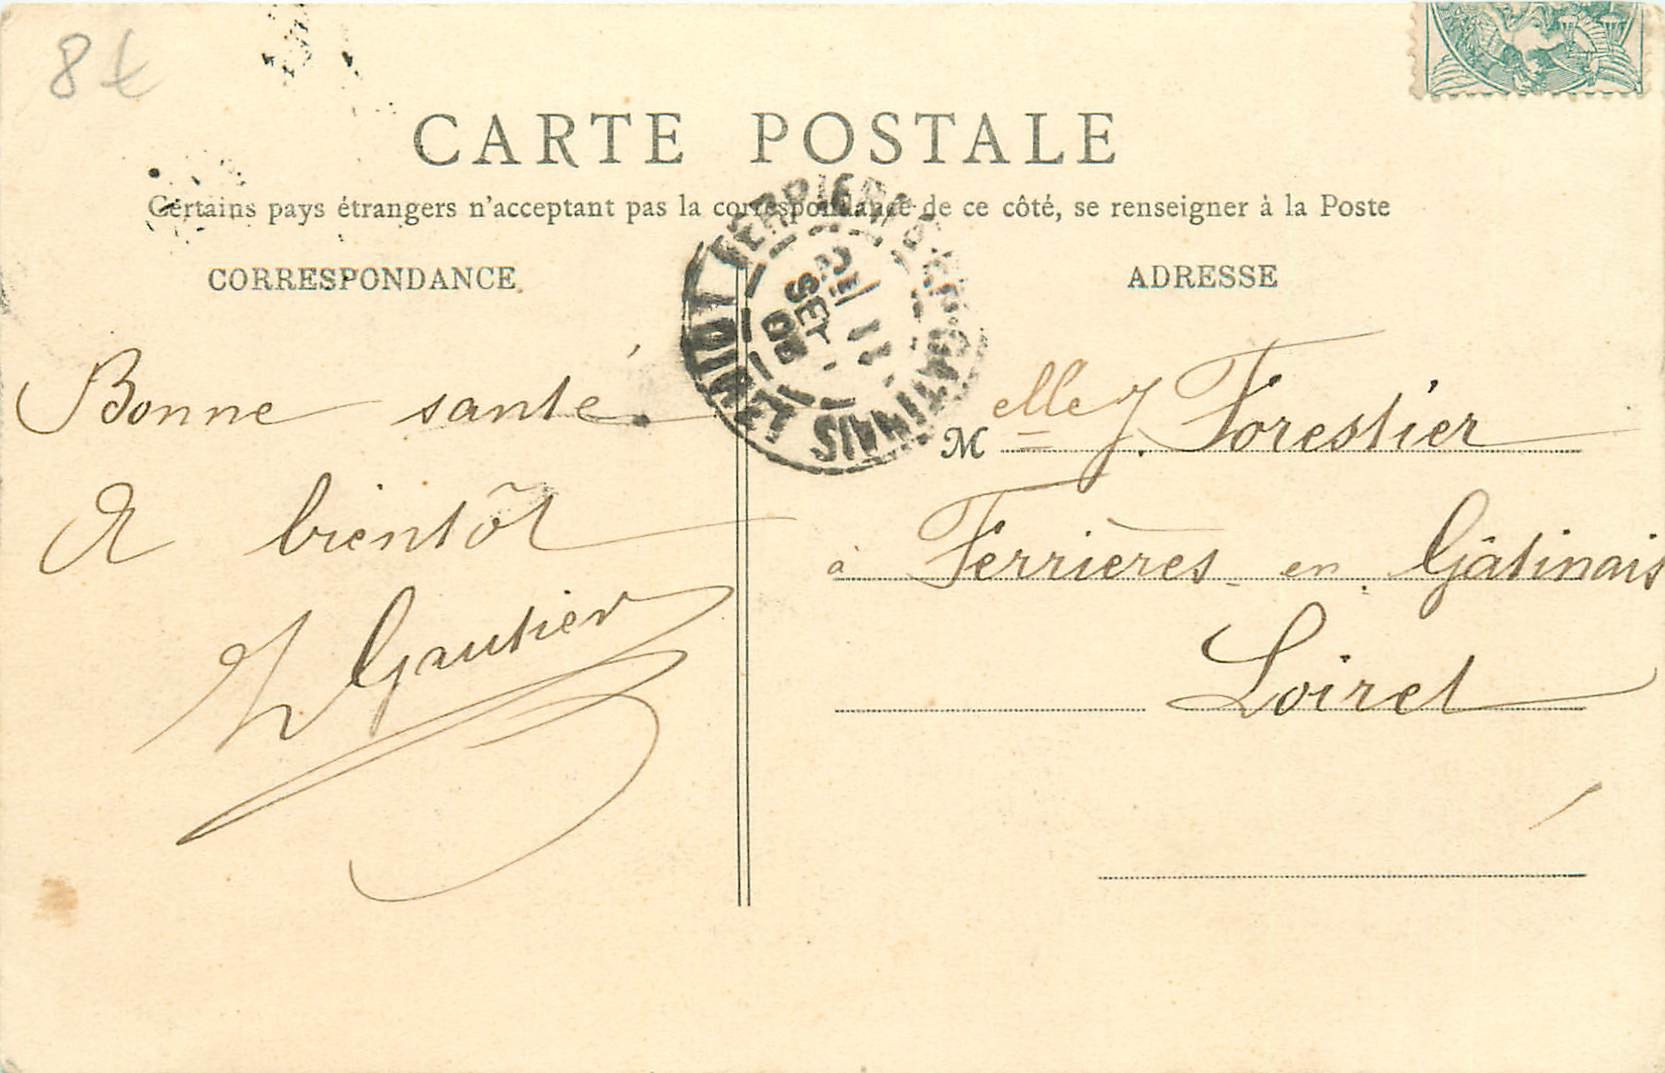 8€
CARTE POSTALE
Certains pays étrangers n'acceptant pas la correspondance de ce côté, se renseigner à la Poste
CORRESPONDANCE
Bonne santé.
A bientôt
Gautier
FERRIERES-EN-GATINAIS LOIRET
11
SEPT
ADRESSE
Melle J. Forestier
à Ferrières-en-Gâtinais
Loiret